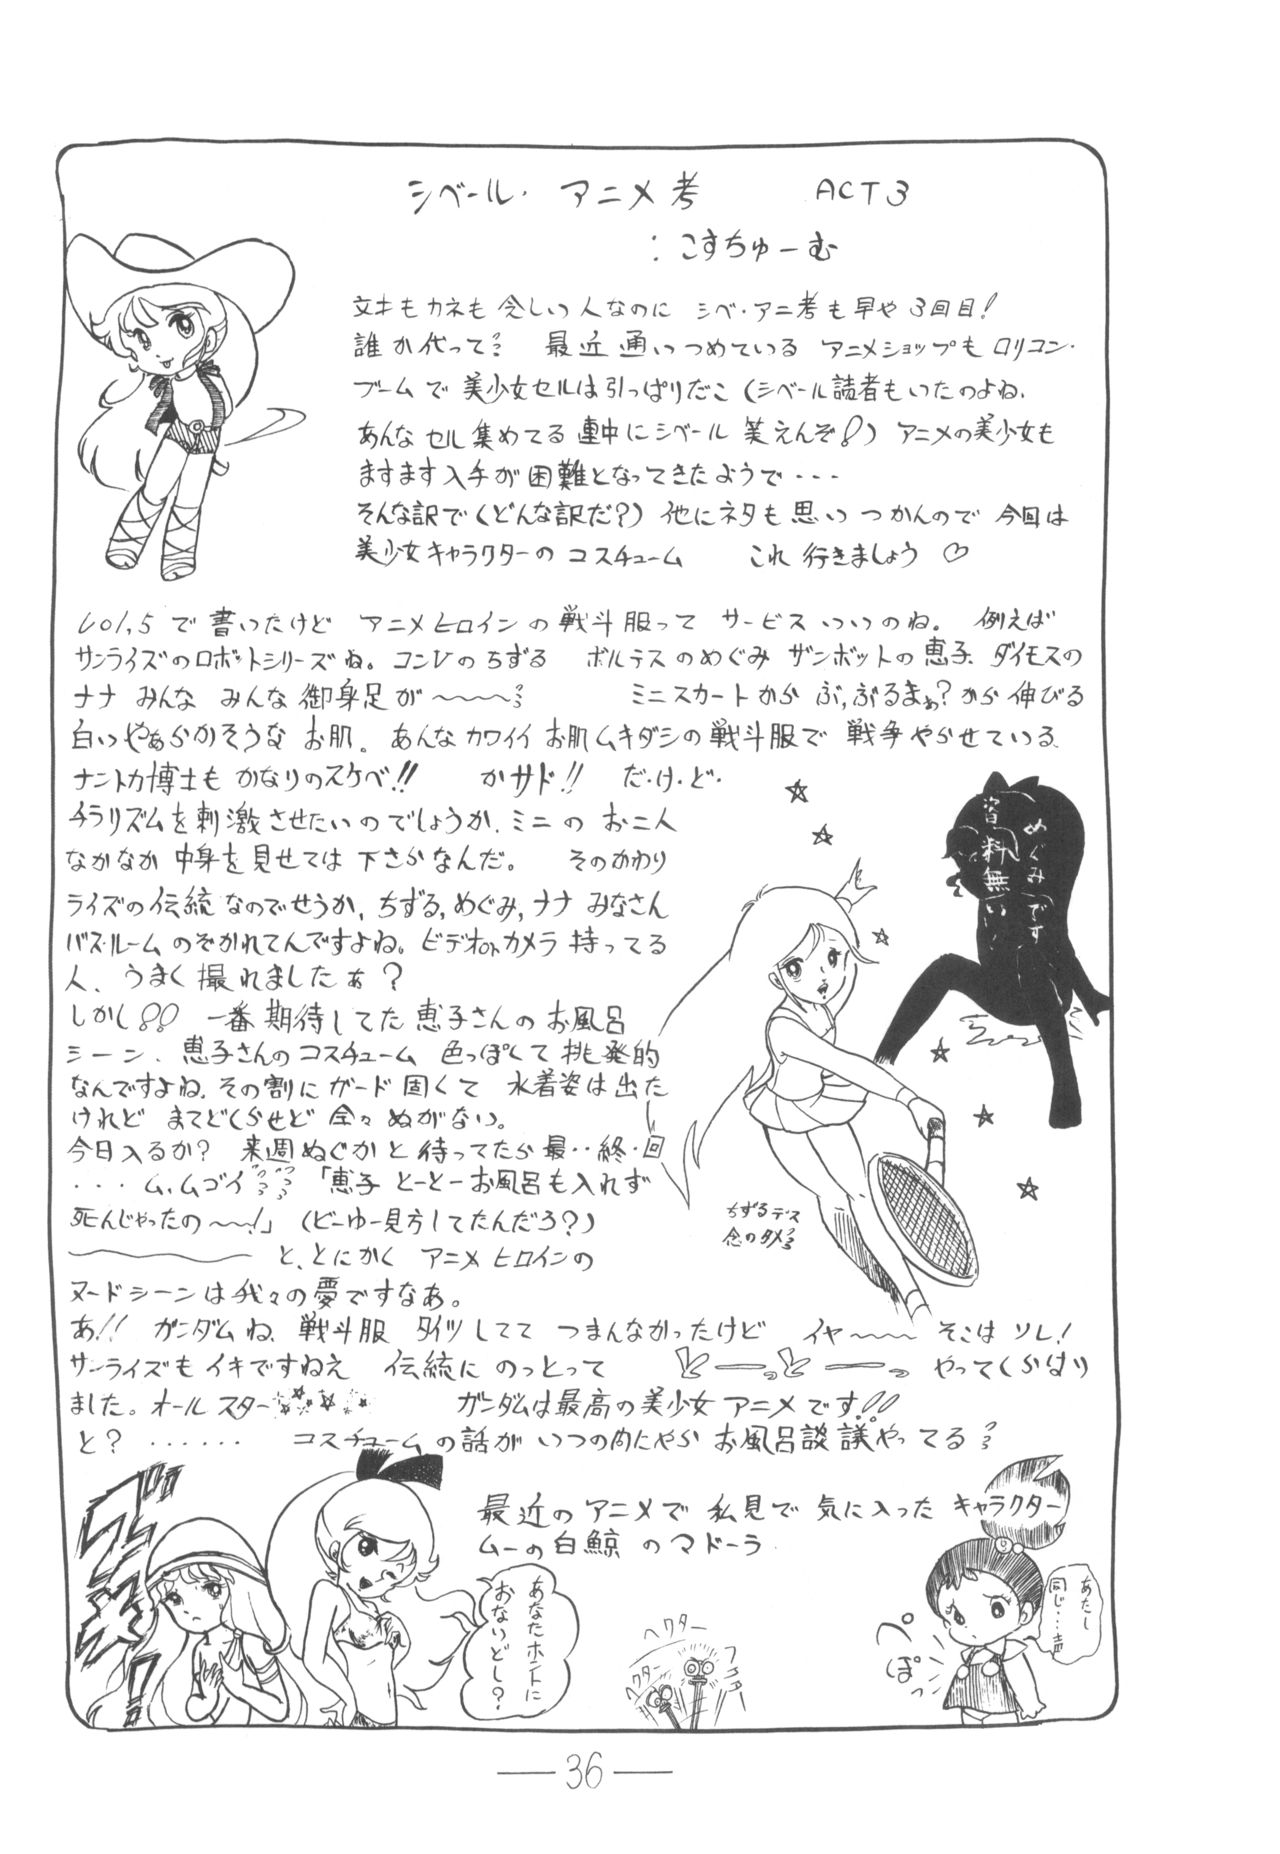 シベール・アニメ考 ACT3
：こすちゅーむ
文才もカネも乏しい人なのに シベ・アニ考も早や3回目！
誰か代って 最近通いつめている アニメショップもロリコン・
ブームで 美少女セルは引っぱりだこ（シベール読者もいたのよね、
あんなセル集めてる連中にシベール笑えんぞ！）アニメの美少女も
ますます入手が困難となってきたようで・・・
そんな訳で（どんな訳だ？）他にネタも思いつかんので 今回は
美少女キャラクターのコスチューム これ行きましょう♡
Vol.5で書いたけど アニメヒロインの戦斗服って サービスいいのね。 例えば
サンライズのロボットシリーズね。コンVのちずる ボルテスのめぐみ ザンボットの恵子、ダイモスの
ナナ みんな みんな御身足が〜〜〜 ミニスカートから ぶ,ぶるまぁ？から伸びる
白いやぁらかそうな お肌。 あんなカワイイお肌ムキダシの戦斗服で 戦争やらせている、
ナントカ博士も かなりのスケベ!! かサド!! だ・け・ど・
チラリズムを刺激させたいのでしょうか、ミニの お二人
なかなか 中身を見せては 下さらなんだ。 そのかわり
ライズの伝統なのでせうか,ちずる,めぐみ,ナナ みなさん
バス・ルームのぞかれてんですよね。ビデオorカメラ 持ってる
人、うまく撮れましたぁ？
しかし!! 一番期待してた恵子さんのお風呂
シーン、恵子さんのコスチューム 色っぽくて挑発的
なんですよね、その割にガード固くて 水着姿は出た
けれど まてどくらせど 全々ぬがない。
今日入るか？ 来週ぬぐかと待ってたら最・・終・回
・・・ム,ムゴイ 「恵子 とーとーお風呂も入れず
死んじゃったの〜〜!」（どーゆー見方してたんだろ？）
と、とにかく アニメヒロインの
ヌードシーンは我々の夢ですなあ。
あ!! ガンダムね、戦斗服 タイツしてて つまんなかったけど イヤ〜〜〜 そこはソレ！
サンライズもイキですねえ 伝統にのっとって どーっとーっ やってくらはり
ました。オールスター ガンダムは最高の美少女アニメです!!
と？ ・・・・・・ コスチュームの話が いつの内にやら お風呂談議やってる
最近のアニメで 私見で 気に入った キャラクター
ムーの白鯨のマドーラ
めぐみです
資料無い
ちずるデス
念のタメ
あなたホントに
おないどし？
ヘクター
ヘクター
ペ
ぽっ
あたし
同じ・・・
— 36 —